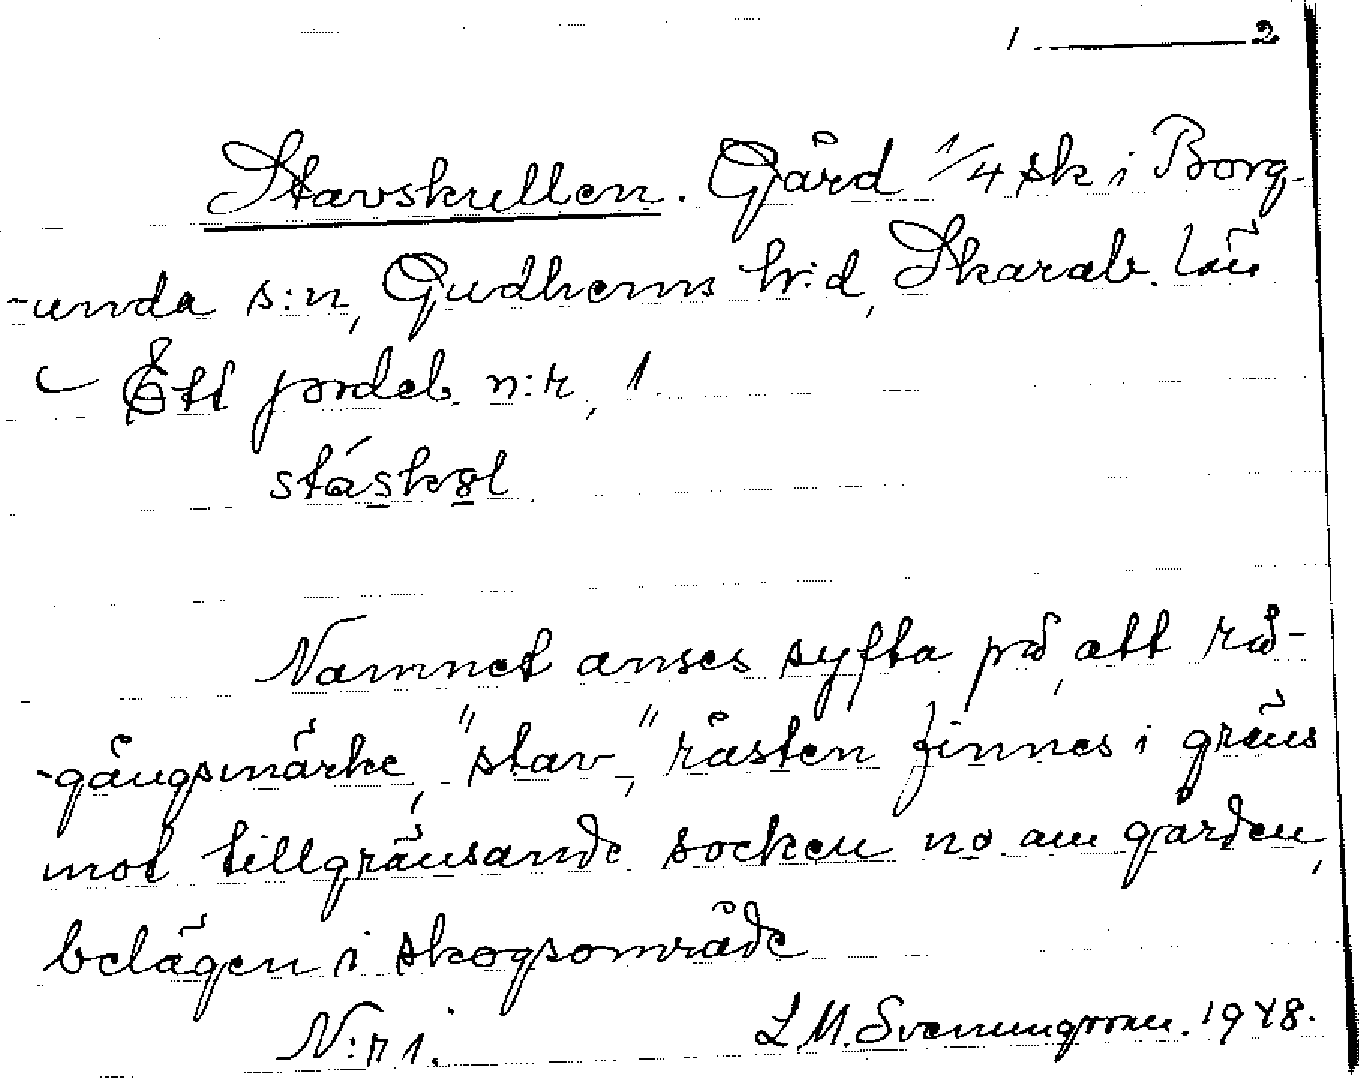 1 ——— 2
Stavskullen. Gård 1/4 sk i Borg-
-unda s:n, Gudhems hr:d, Skarab. län
Ett jordeb. n:r, 1
stáskøl
Namnet anses syfta på, att rå-
-gångsmärke, "stav," råsten finnes i gräns
mot tillgränsande socken no. om gården,
belägen i skogsområde
N:r 1. L. M. Svenungsson. 1948.